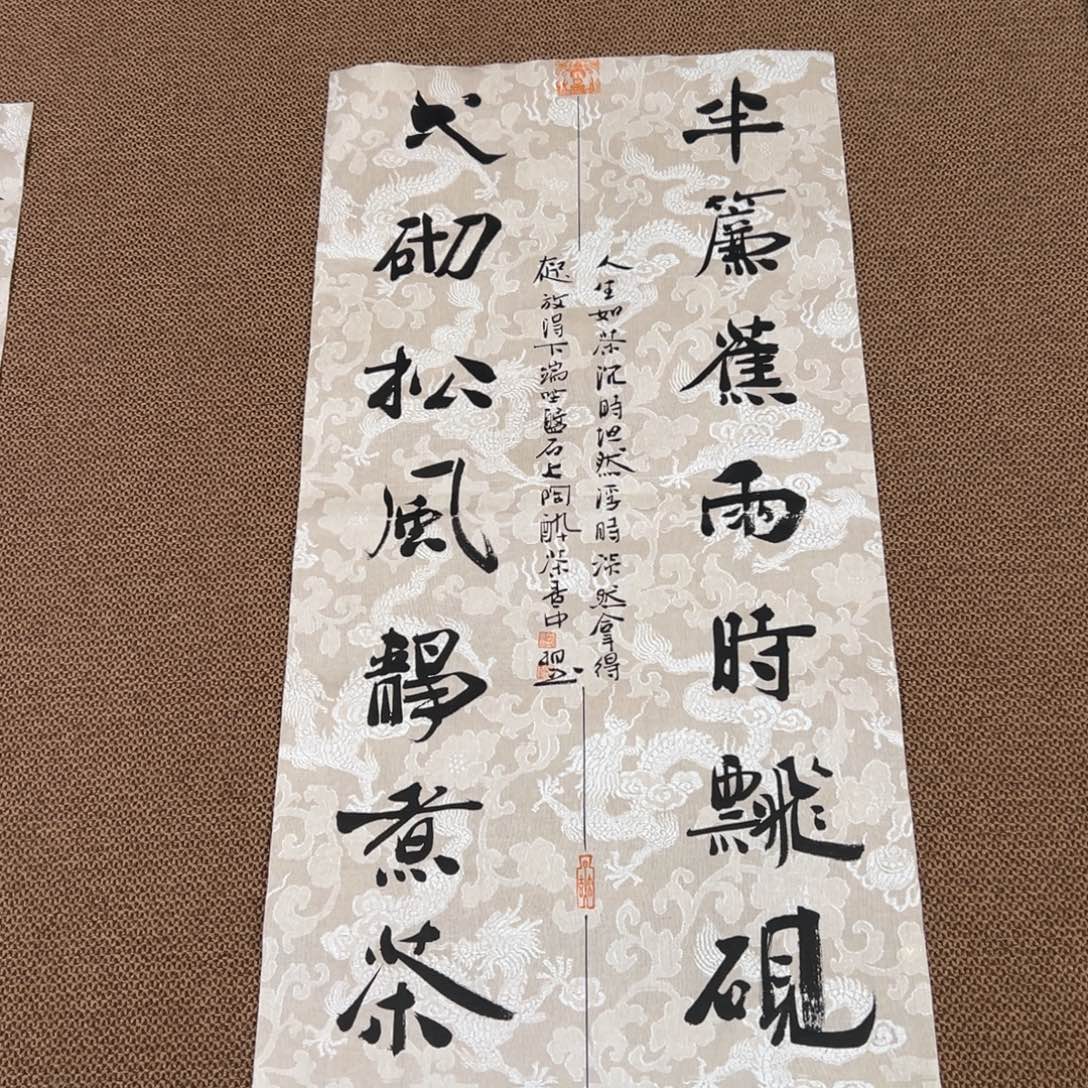 半簾蕉雨時飄硯
人生如茶沉時坦然浮時淡然拿得
起放得下端坐石上陶醉茶香中
弌砌松風靜煮茶